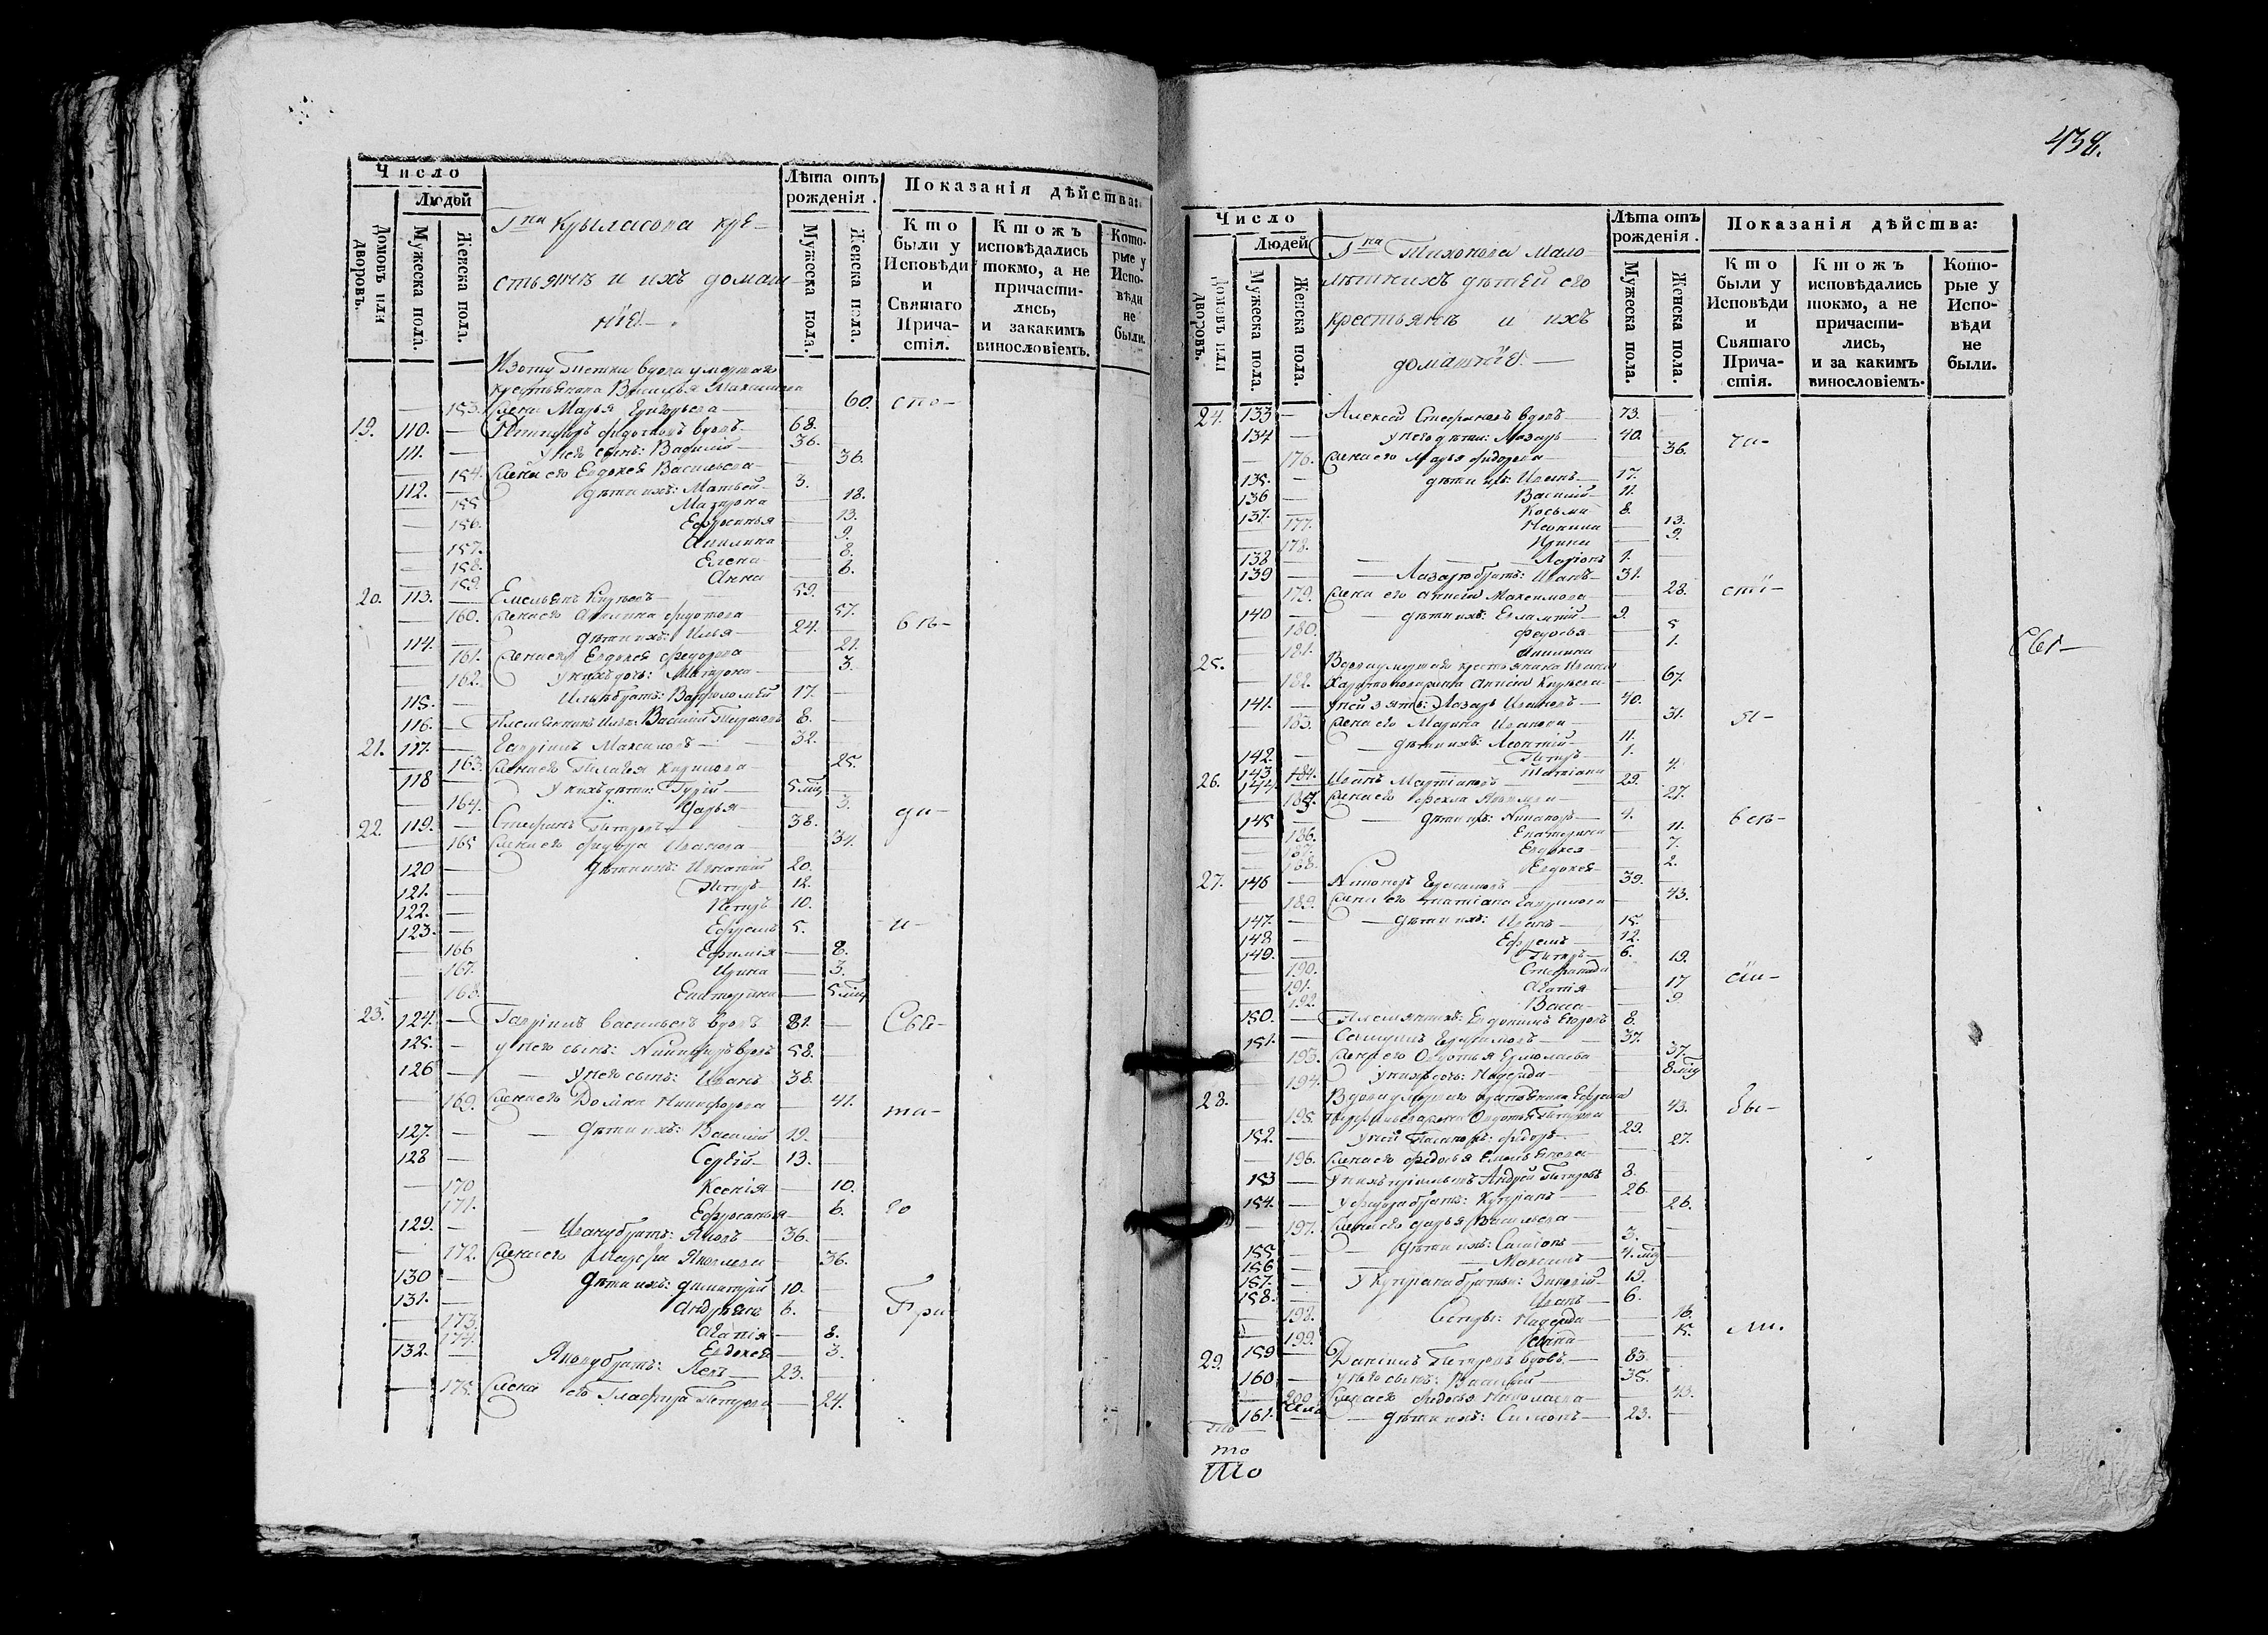 438.
Число
Людей
Домовъ или дворовъ.
Мужеска пола.
Женска пола.
Гна Крыласова кре-
стьянѣ и ихъ домаш-
нiе.
Лѣта отъ рожденiя.
Мужеска пола.
Женска пола.
Показанiя дѣйства:
Кто были у Исповѣди и Святаго Прича-стiя.
Ктожъ исповѣдались токмо, а не причасти-лись, и закакимъ винословiемъ.
Кото-рые у Испо-вѣди не были.
вдова умершаго
крестьянина Василья Максимова
153. жена Марья Григорьева — 60. сто-
19. 110. — Федотовъ вдовъ — 68.
111. — у него сынъ: Василiй — 36.
154. жена его Евдокея Васильева — 36.
112. — дѣти ихъ: Матвей — 3.
155 Матрона — 18.
156. Ефросинья — 13.
157. Акилина — 9.
158. Елена — 8.
159. Анна — 6.
20. 113. — Емельянъ Кириловъ — 59.
160. жена его Акилина Федотова — 57. бѣ-
114. — дѣти ихъ: Илья — 24.
161. жена его Евдокея Федорова — 21.
162. у нихъ дочь: Матрона — 3.
115. — Ильѣ братъ: Варфоломей 17. —
116. — Племянникъ Ильи: Василiй Петровъ 8. —
21. 117. — Гаврiилъ Максимовъ — 32.
163. жена его Пелагея Кирилова — 25.
118 — у нихъ дѣти: Гурiй — 5 мц
164. Дарья — 3. ди-
22. 119. — Стефанъ Петровъ — 38.
165 жена его Федора Иванова — 34.
120 — дѣти ихъ: Игнатiй 20.
121. — Петръ — 12.
122. — Петръ 10.
123. — Ефремъ 5. и-
166 Ефимiя — 8.
167. Ирина — 3.
168. Екатерина — 5 мц
23. 124. — Гаврiилъ Васильевъ вдовъ 81. — Свѣ-
125. — у него сынъ: Никифоръ вдовъ 58.
126 — у него сынъ: Иванъ 38.
169. жена его Домна Никифорова — 41. та-
127. — дѣти ихъ: Василiй 19. —
128 — Сергiй — 13. —
170 Ксенiя — 10.
171. Ефросинья — 6. го
129. — Ивану братъ: Яковъ — 36. —
172. жена его Марфа Яковлева — 36.
130 — дѣти ихъ: Димитрiй 10. —
131. — Андреянъ 6. — При
173. Агапiя — 8.
174. Евдокея — 3.
132. — Якову братъ: Левъ — 23.
175. жена его Глафира Петрова — 24.
Число
Людей
Домовъ или дворовъ.
Мужеска пола.
Женска пола.
Гна Тихонова мало-
лѣтнихъ дѣтей его
крестьянѣ и ихъ
домашнiе. —
Лѣта отъ рожденiя.
Мужеска пола.
Женска пола.
Показанiя дѣйства:
Кто были у Исповѣди и Святаго Прича-стiя.
Ктожъ исповѣдались токмо, а не причасти-лись, и за какимъ винословiемъ.
Кото-рые у Испо-вѣди не были.
24. 133 — Алексей Стефановъ вдовъ — 73. —
134 — у него дѣти: Лазарь — 40. ча-
176. жена его Марья Федорова — 36.
135. — дѣти ихъ: Иванъ — 17.
136 — Василiй — 11.
137. Косьма 8.
177. Неонила — 13.
178. Ирина — 9.
138 — Ларiонъ 1. —
139 — Лазарю братъ: Иванъ — 31.
179. жена его Анисья Максимова — 28. стi-
140 — дѣти ихъ: Евлампiй — 9.
180. Федосья — 5
181. Акилина — 1.
Свя-
25. Вдова умершаго крестьянина Ивана
182. Анисья Кирилова — 67.
141. — у ней зять: Лазарь Ивановъ — 40.
183. жена его Марина Иванова — 31. я-
142. — дѣти ихъ: Леонтiй — 11.
143 Петръ — 1.
184. Татiана 4.
26. 144 Иванъ Мартиановъ — 29.
185. жена его Фекла Яковлева — 27.
145 — дѣти ихъ: Никифоръ — 4. всѣ-
186. Екатерина — 11.
187. Евдокея — 7.
188. Евдокея — 2.
27. 146 — Никифоръ — 39.
189. жена его Татiана Гаврилова — 43.
147. — дѣти ихъ: Иванъ — 15.
148 — Ефремъ — 12.
149. — Петръ — 6.
190. Стефанида 19.
191. Агапiя — 17 сiи-
192. Васса — 9.
150. — Племянникъ: Евдокимъ Егоровъ 8.
151. — 37.
193. жена его Авдотья Ермолаева — 37.
194. у нихъ дочь: Надежда — 8 мц
28. Вдова умершаго крестьянина
195. жена Авдотья Петрова — 43. бы-
152. — у ней пасынокъ: Федоръ — 29.
196. жена его Федосья Емельянова — 27.
153 — у нихъ прiимышъ Андрей Петровъ 8.
154. — у Федора братъ: Купрiянъ — 26
197. жена его Дарья Васильева — 26.
155. — дѣти ихъ: Самсонъ — 3.
156 — Максимъ — 4. мц
157. — у Купрiяна братья: Зиновiй — 19.
158. — Иванъ — 6.
198. Сестры: Надежда — 16.
199. 15. ли.
29. 159 — Данiилъ Петровъ вдовъ — 83. —
160 — у него сынъ: Василiй — 35.
200. жена его Федосья Николаева — 43.
161. — дѣти ихъ: Симонъ — 23. —
то
то
Что